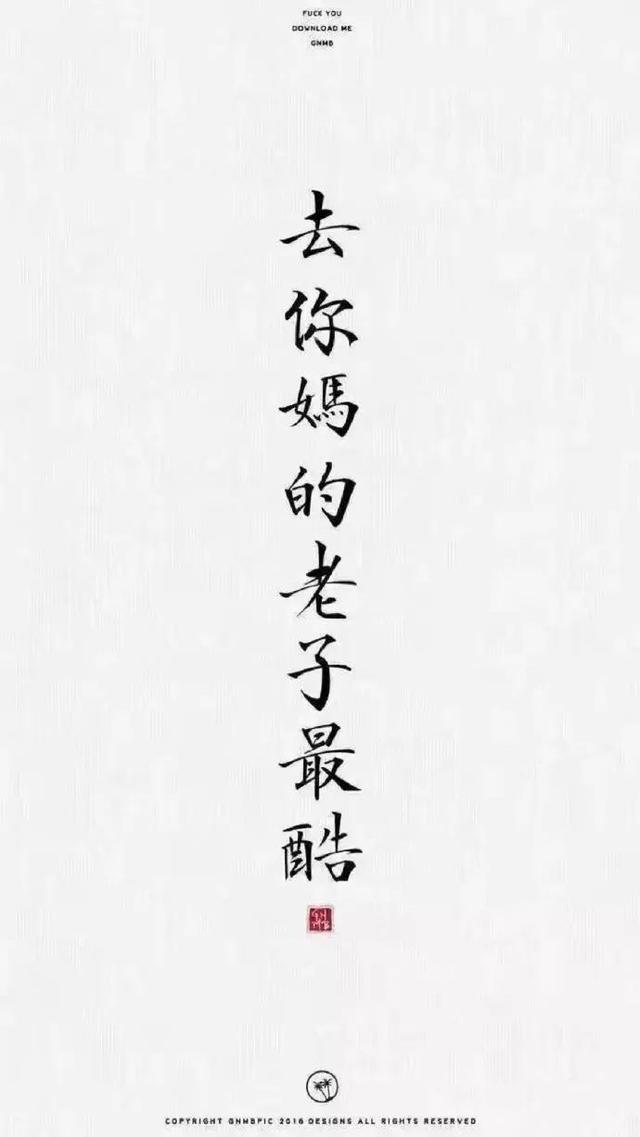 FUCK YOU
DOWNLOAD ME
GNMB
去你媽的老子最酷
GN
MB
COPYRIGHT GNMBPIC 2016 DESIGNS ALL RIGHTS RESERVED